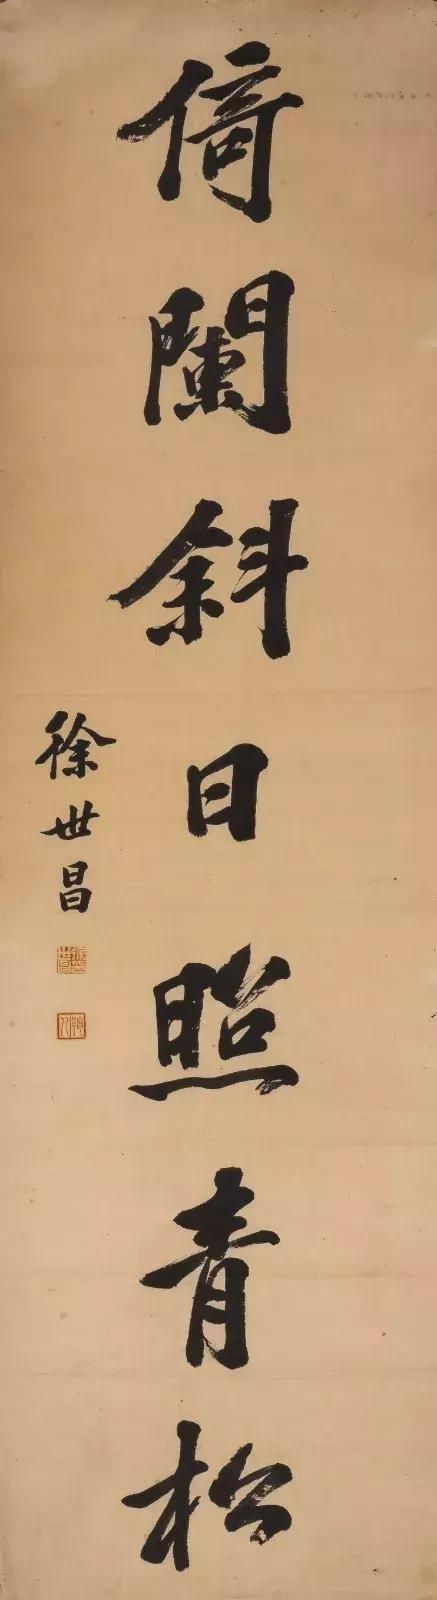 倚闌斜日照青松
徐世昌